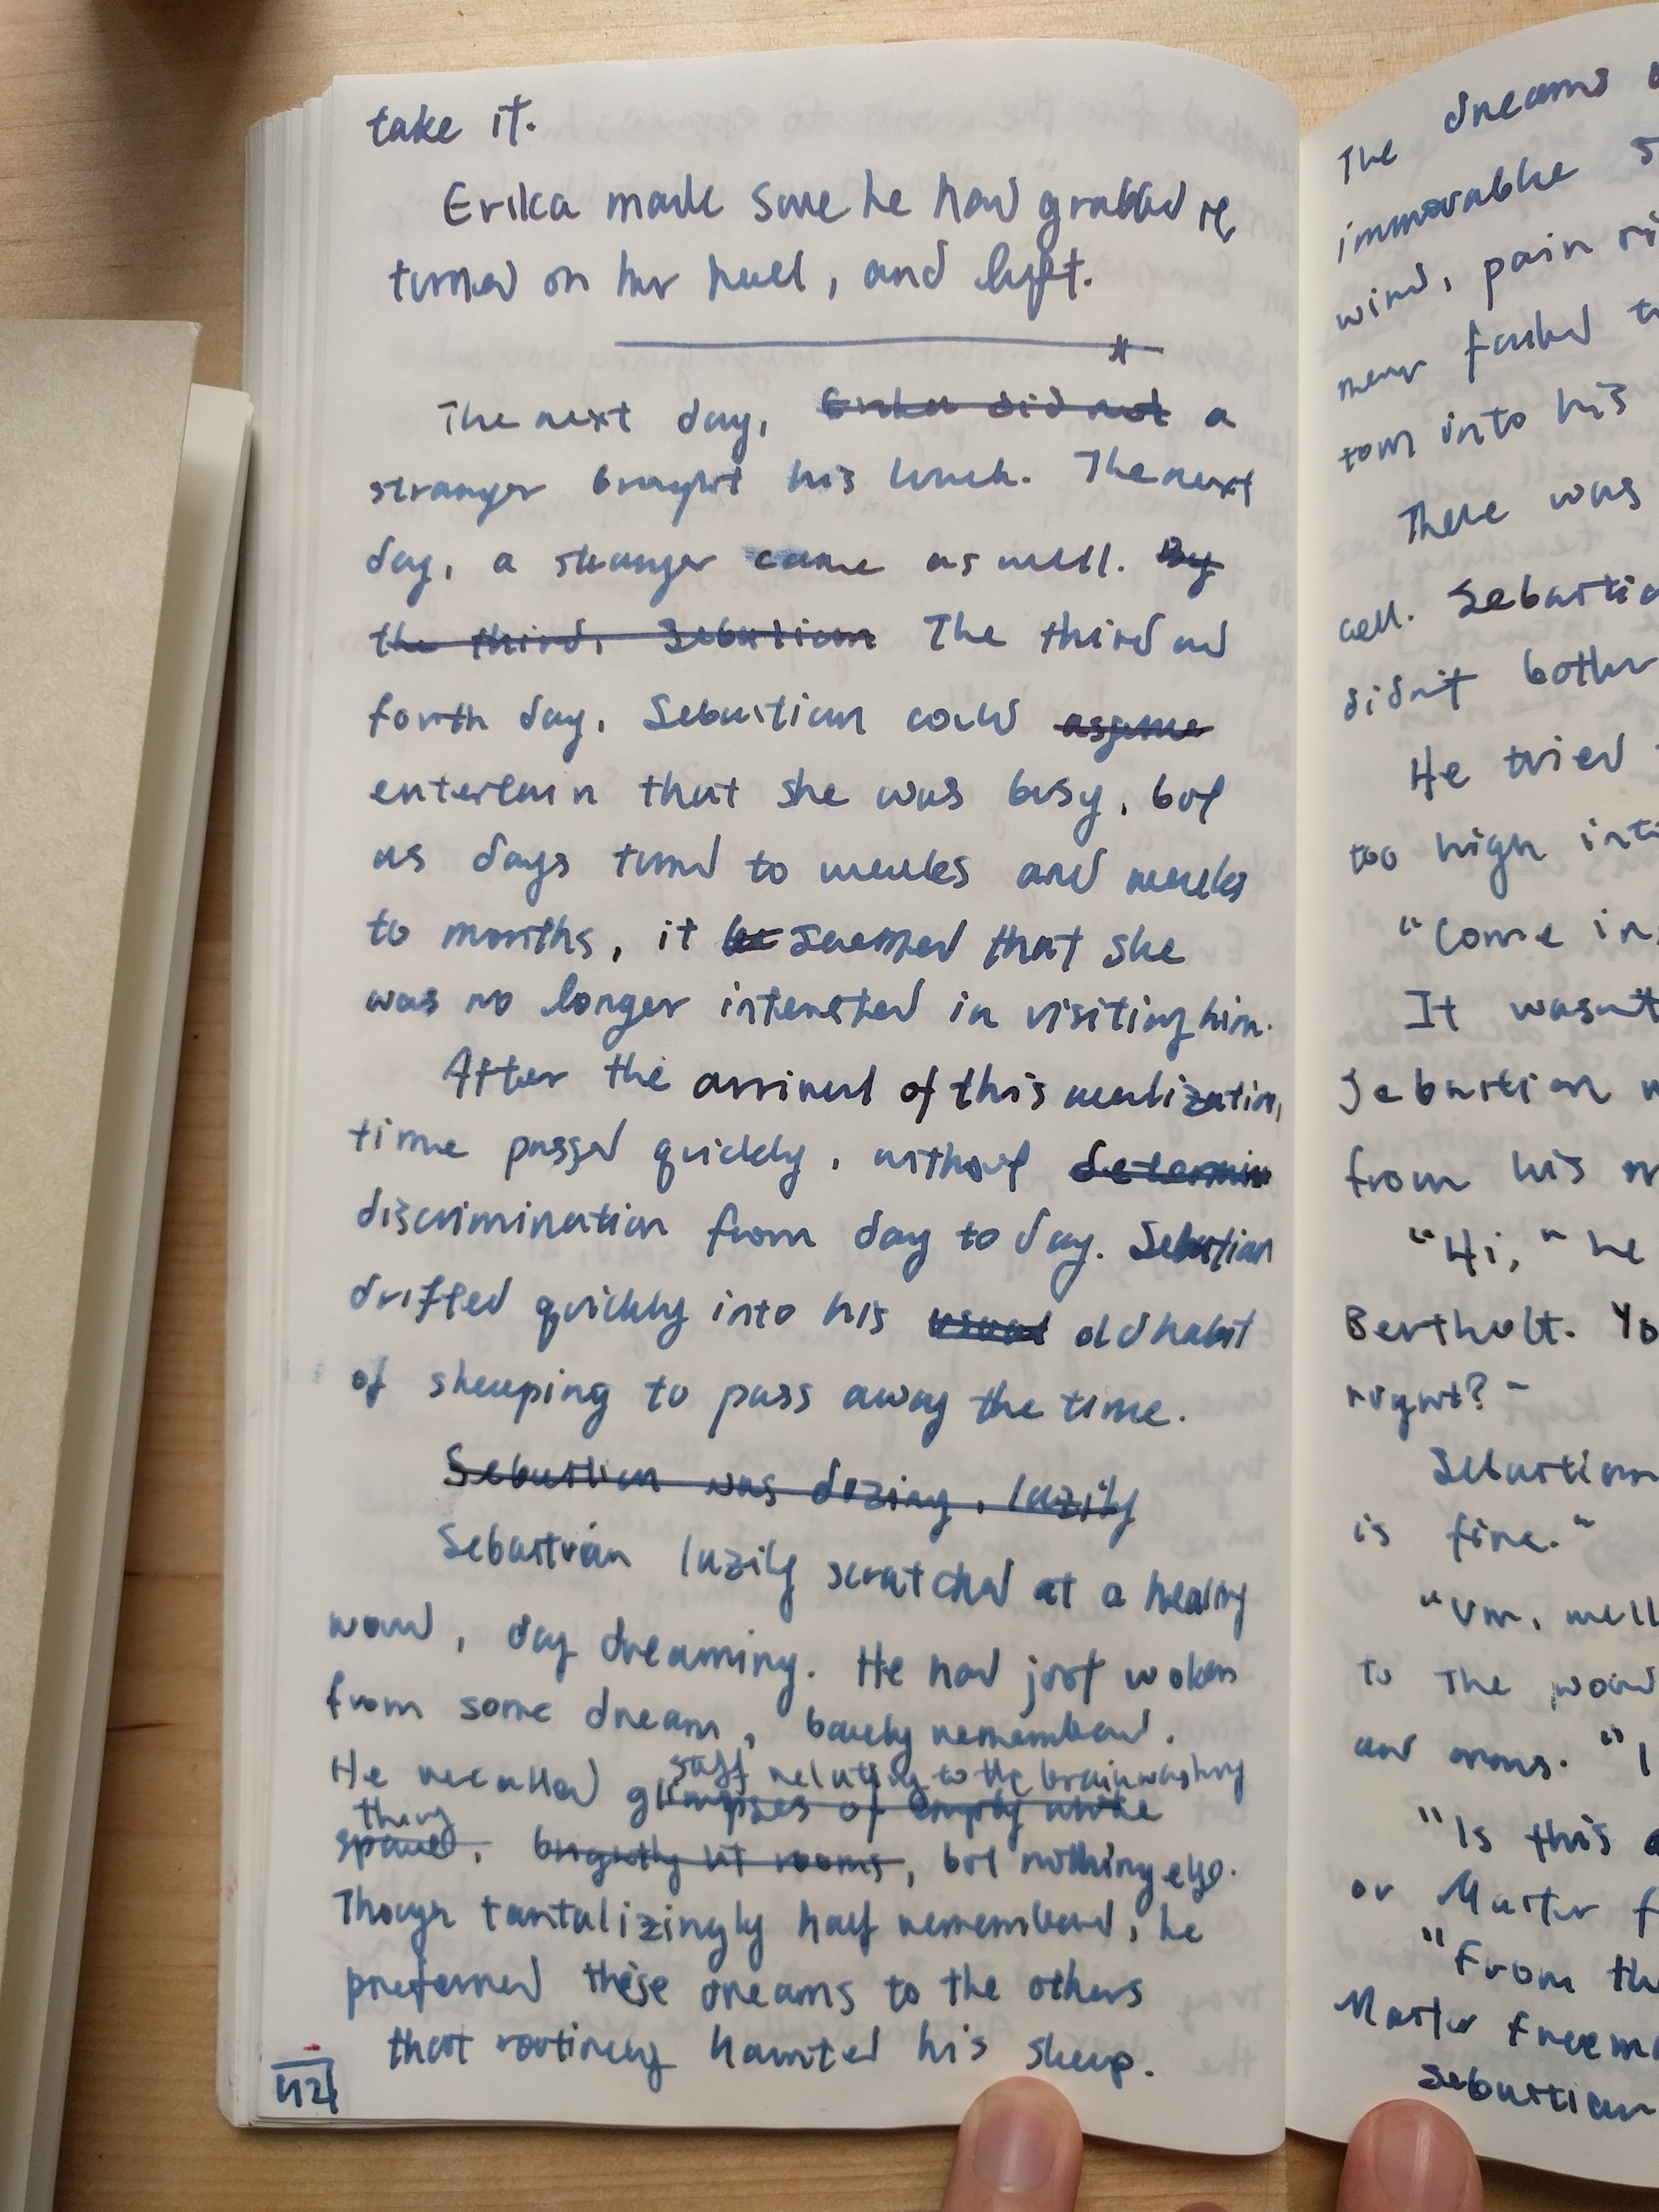 take it.
Erika made sure he had grabbed it,
turned on her heel, and left.
The next day, Erika did not a
stranger brought his lunch. The next
day, a stranger came as well. By
the third, Sebastian The third and
forth day, Sebastian could assume
entertain that she was busy, but
as days turned to weeks and weeks
to months, it be seemed that she
was no longer interested in visiting him.
After the arrival of this realization,
time passed quickly, without determin
discrimination from day to day. Sebastian
drifted quickly into his usual old habit
of sleeping to pass away the time.
Sebastian was dozing, lazily
Sebastian lazily scratched at a healing
wound, day dreaming. He had just woken
from some dream, barely remembered.
stuff relating to the brainwashing
He recalled glimpses of empty white
thing
spaces, brightly lit rooms, but nothing else.
Though tantalizingly half remembered, he
preferred these dreams to the others
that routinely haunted his sleep.
42
The dreams
immovable
wind, pain
near faded
torn into his
There was
cell. Sebastia
didn't bother
He tried
too high
"Come in,
It wasn't
Sebastian
from his
"Hi," he
Bertholt. Yo
right?"
Sebastian
is fine."
"Um, well
to the
and arms. "I
"Is this
or Martur f
"From the
Martur Freema
Sebastian